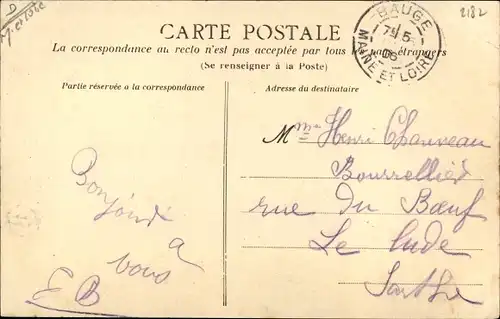 D
2182
CARTE POSTALE
La correspondance au recto n'est pas acceptée par tous les pays étrangers
(Se renseigner à la Poste)
BAUGE
7 5
06
MAINE ET LOIRE
Partie réservée à la correspondance
Adresse du destinataire
Mme Henri Chauveau
Bourrellier
rue du Bœuf
Le Lude
Sarthe
à
vous
E B